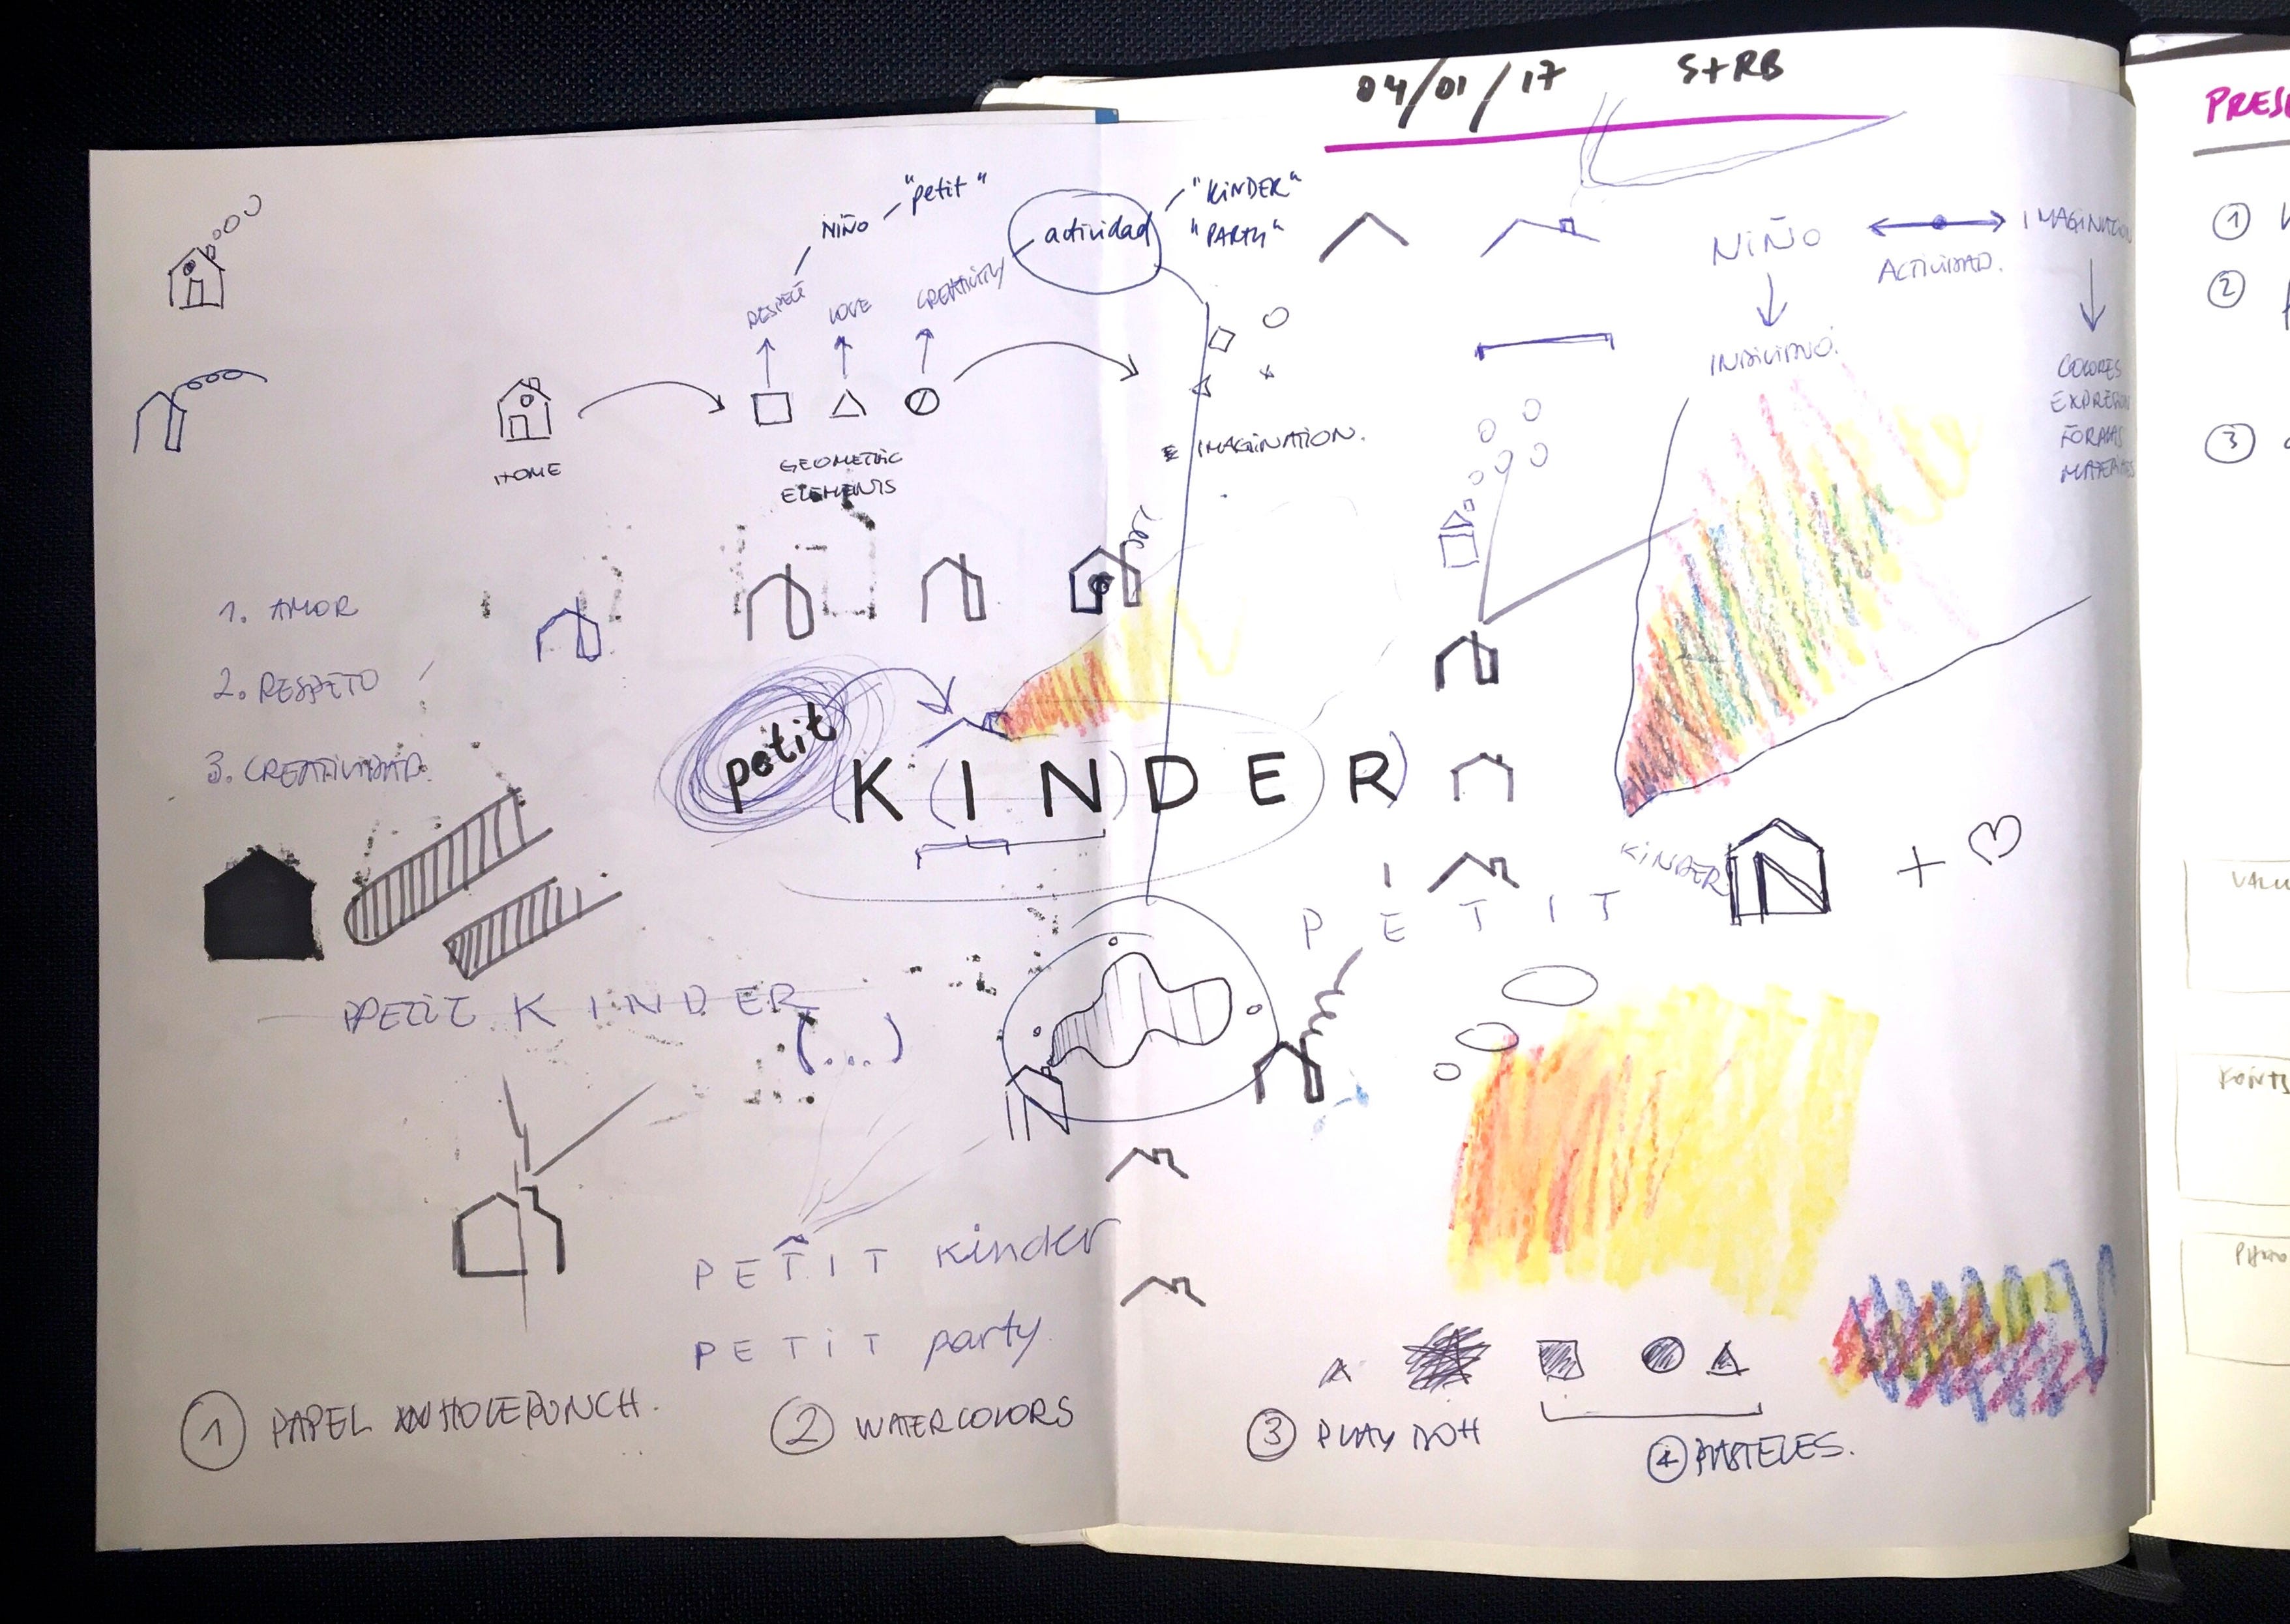 04/01/17 S+RB
"petit"
NIÑO
actividad
"KINDER"
"PARTY"
RESPECT
LOVE
CREATIVITY
HOME
GEOMETRIC
ELEMENTS
IMAGINATION.
NIÑO
ACTIVIDAD.
IMAGINATION
INDIVIDUO.
COLORES
EXPRESION
FORMAS
MATERIALES
1. AMOR
2. RESPETO
3. CREATIVIDAD.
petit
(K(IN)DER)
KINDER
+
PETIT
PETIT KINDER
(...)
PETIT kinder
PETIT party
1 PAPEL HOLEPUNCH.
2 WATERCOLORS
3 PLAY DOH
4 PASTELES.
PRESE
1
2
3
VALU
FONTS
PHOTO